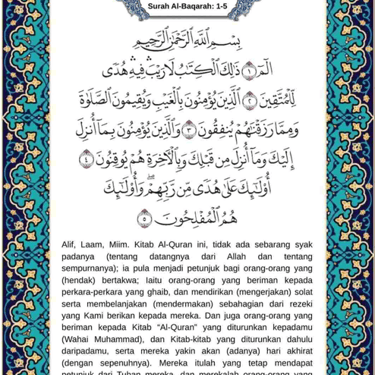 Surah Al-Baqarah: 1-5
بِسْمِ اللَّهِ الرَّحْمَٰنِ الرَّحِيمِ
الٓمٓ ١ ذَٰلِكَ الْكِتَٰبُ لَا رَيْبَ ۛ فِيهِ ۛ هُدًى
لِّلْمُتَّقِينَ ٢ الَّذِينَ يُؤْمِنُونَ بِالْغَيْبِ وَيُقِيمُونَ الصَّلَوٰةَ
وَمِمَّا رَزَقْنَٰهُمْ يُنفِقُونَ ٣ وَالَّذِينَ يُؤْمِنُونَ بِمَآ أُنزِلَ
إِلَيْكَ وَمَآ أُنزِلَ مِن قَبْلِكَ وَبِالْآخِرَةِ هُمْ يُوقِنُونَ ٤
أُولَٰٓئِكَ عَلَىٰ هُدًى مِّن رَّبِّهِمْ ۖ وَأُولَٰٓئِكَ
هُمُ الْمُفْلِحُونَ ٥
Alif, Laam, Miim. Kitab Al-Quran ini, tidak ada sebarang syak
padanya (tentang datangnya dari Allah dan tentang
sempurnanya); ia pula menjadi petunjuk bagi orang-orang yang
(hendak) bertakwa; Iaitu orang-orang yang beriman kepada
perkara-perkara yang ghaib, dan mendirikan (mengerjakan) solat
serta membelanjakan (mendermakan) sebahagian dari rezeki
yang Kami berikan kepada mereka. Dan juga orang-orang yang
beriman kepada Kitab "Al-Quran" yang diturunkan kepadamu
(Wahai Muhammad), dan Kitab-kitab yang diturunkan dahulu
daripadamu, serta mereka yakin akan (adanya) hari akhirat
(dengan sepenuhnya). Mereka itulah yang tetap mendapat
petunjuk dari Tuhan mereka, dan merekalah orang-orang yang